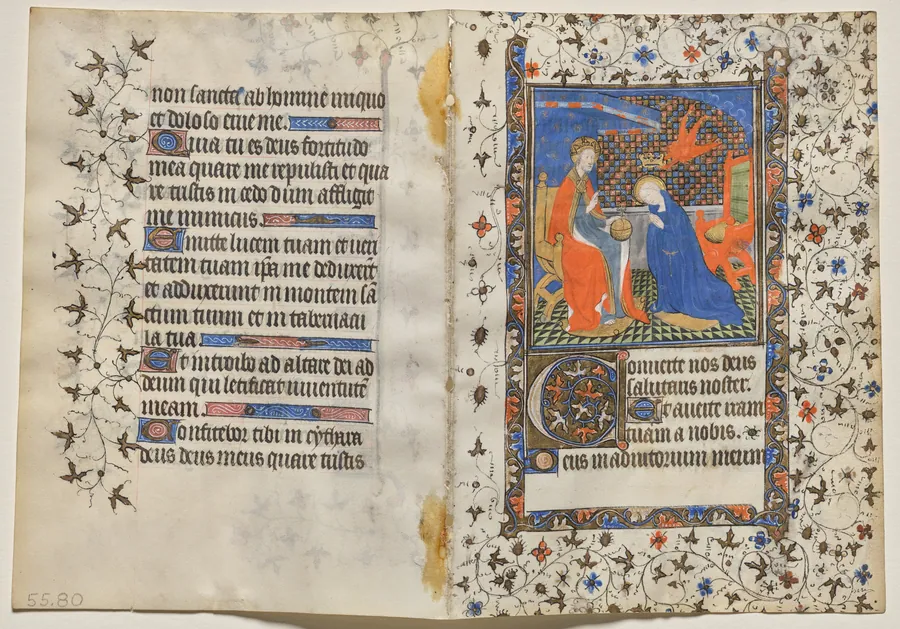 non sancta ab homine iniquo
et doloso erue me.
Quia tu es deus fortitudo
mea quare me repulisti et qua
re tristis incedo dum affligit
me inimicus.
Emitte lucem tuam et ueri
tatem tuam ipsa me deduxerũt
et adduxerunt in montem sã
ctum tuum et in tabernacu
la tua
Et introibo ad altare dei ad
deum qui letificat iuuentutẽ
meam.
Confitebor tibi in cythara
deus deus meus quare tristis
55.80
Conuerte nos deus
salutaris noster.
Et auerte iram
tuam a nobis.
Deus in adiutorium meum